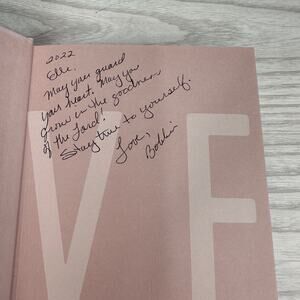 2022
Elle,
May you guard
your heart. May you
grow in the goodness
of the Lord!
Stay true to yourself.
Love,
Bobbie
VE